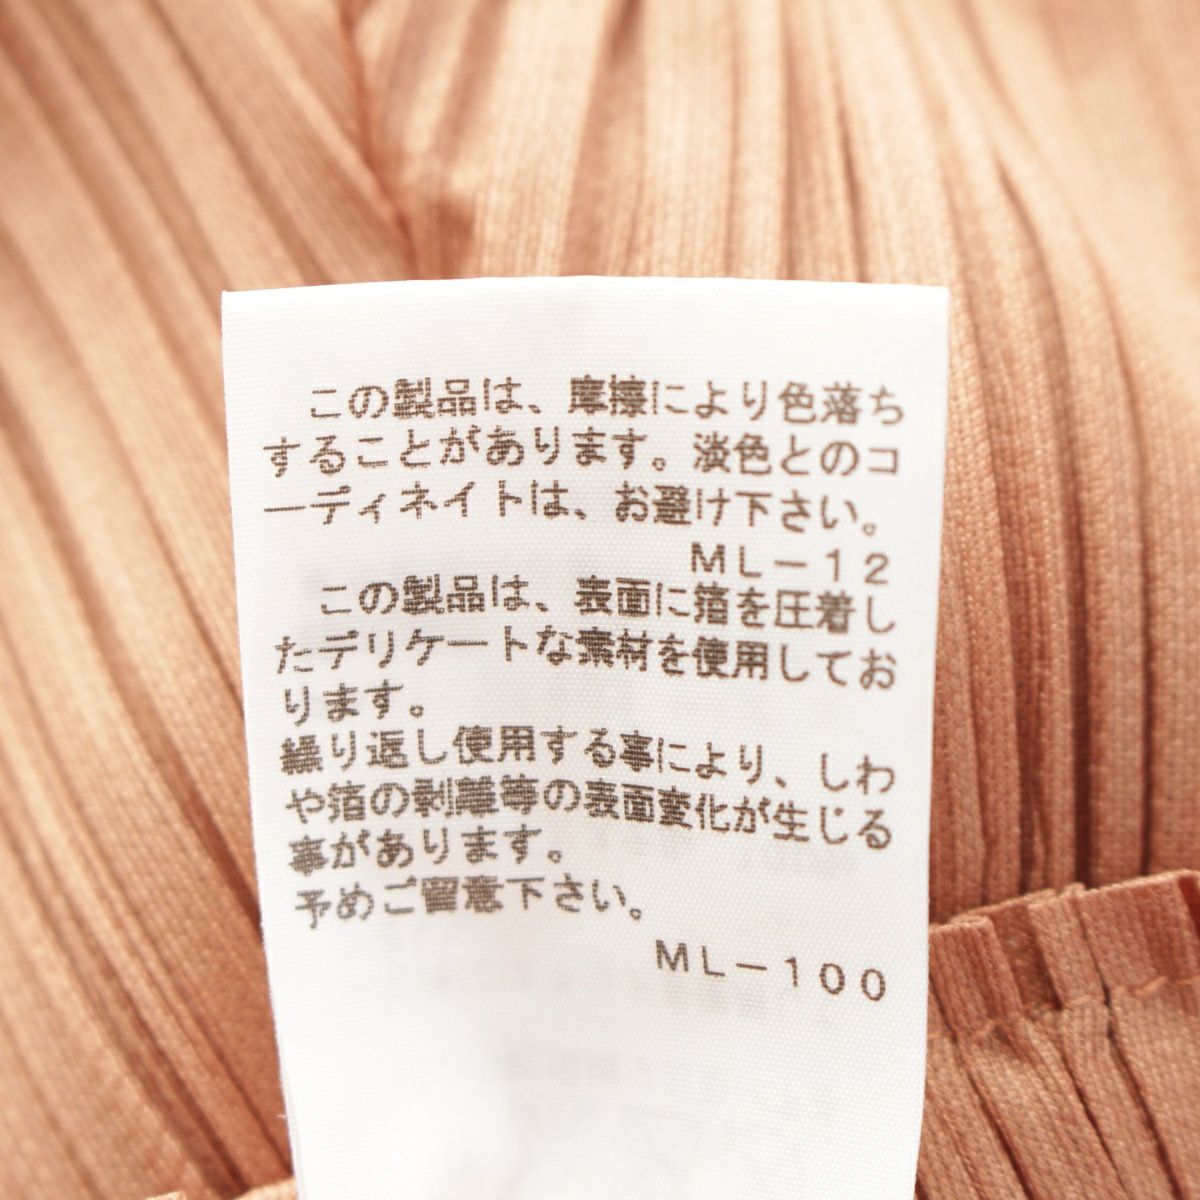 この製品は、摩擦により色落ち
することがあります。淡色とのコ
ーディネイトは、お避け下さい。
ML-12
この製品は、表面に箔を圧着し
たデリケートな素材を使用してお
ります。
繰り返し使用する事により、しわ
や箔の剥離等の表面変化が生じる
事があります。
予めご留意下さい。
ML-100